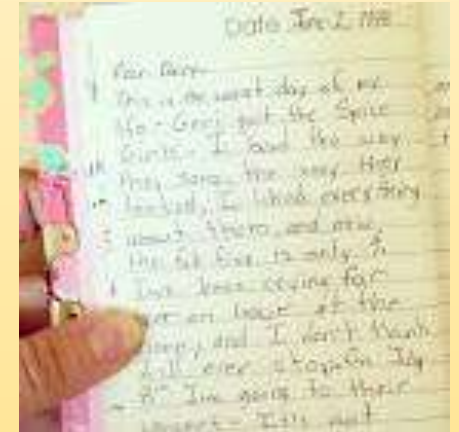 Date June 2, 1998
Dear Diary
This is the worst day of my
life - Geri quit the Spice
Girls. I loved the way
they sang, the way they
looked, I liked everything
about them and now
the fab five is only 4.
I've been crying for
over an hour at the
and I don't think
I'll ever stop. On July
8th I'm going to their
concert - It's not